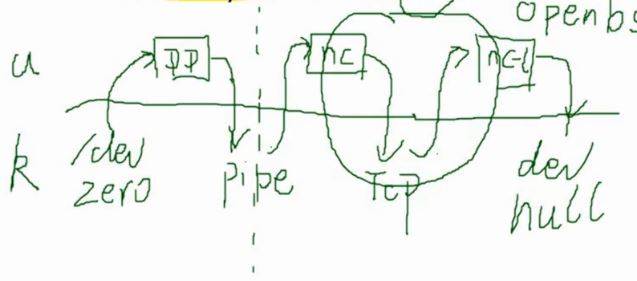 openbs
u
DD
nc
nc-l
k
/dev
zero
pipe
TCP
dev
null